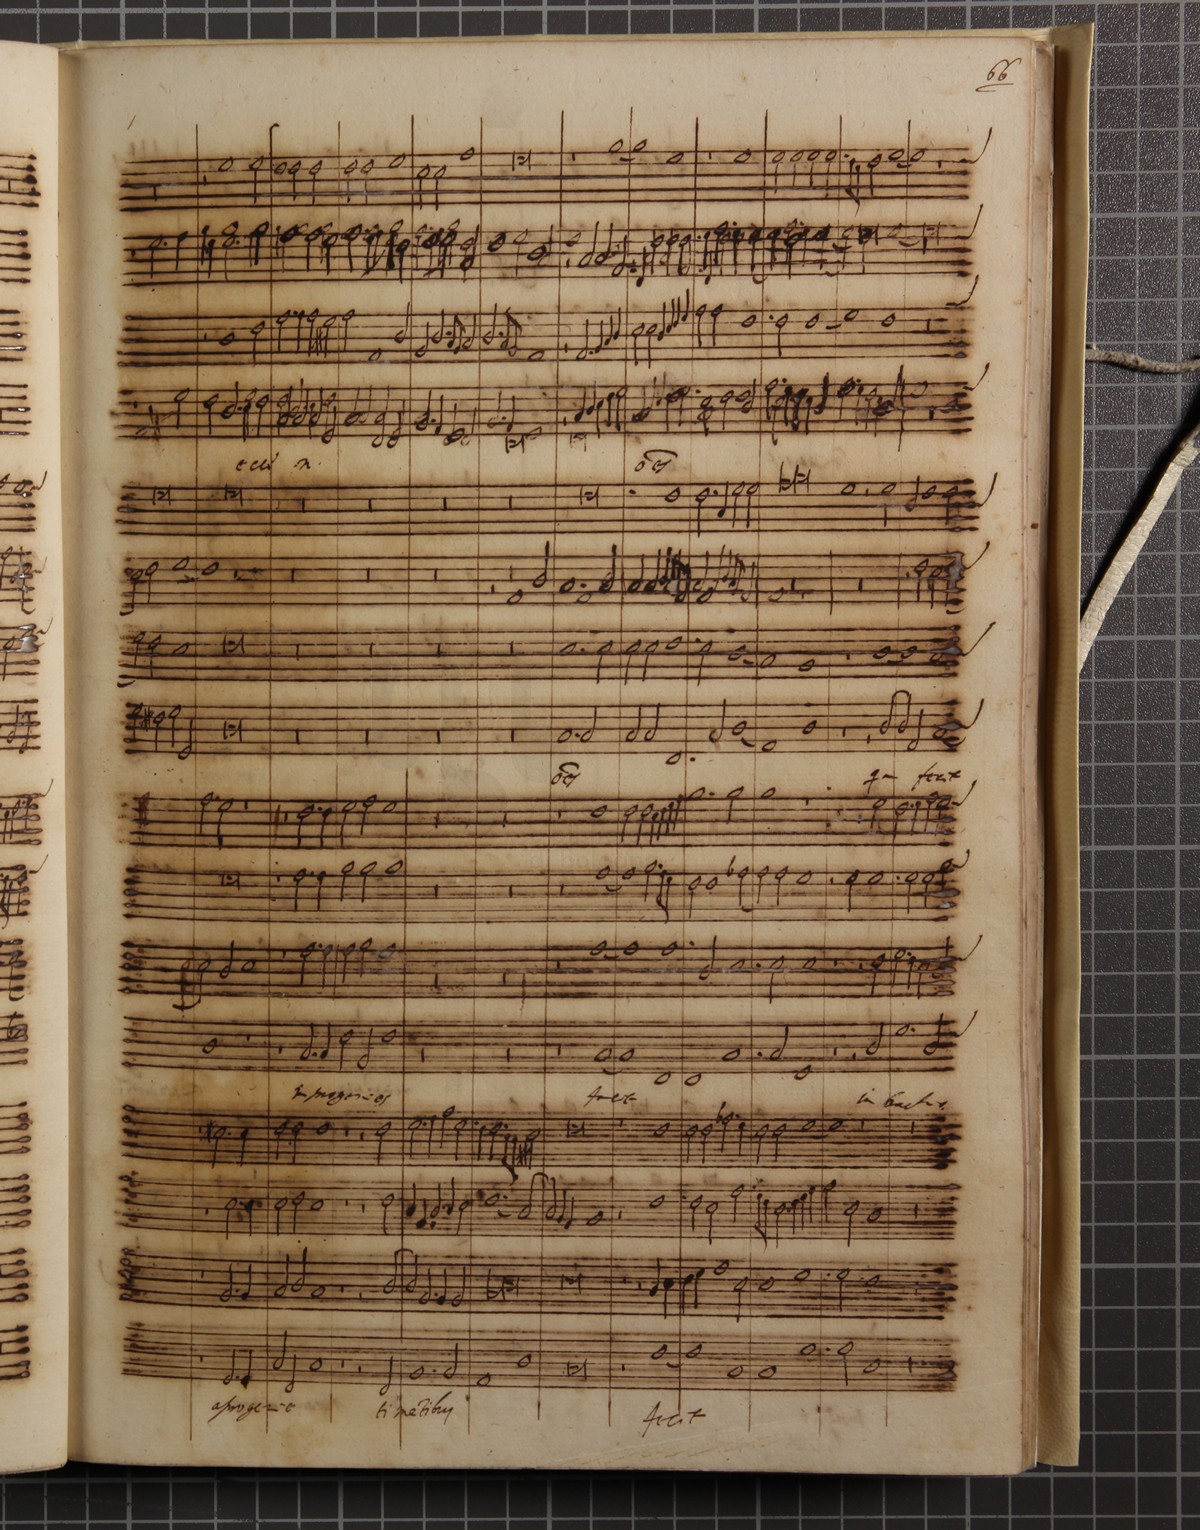 66
ecce n.
oēs
oēs
q̄ fecit
in progenies
fecit
in brachio
a progenie
timētibus
fecit